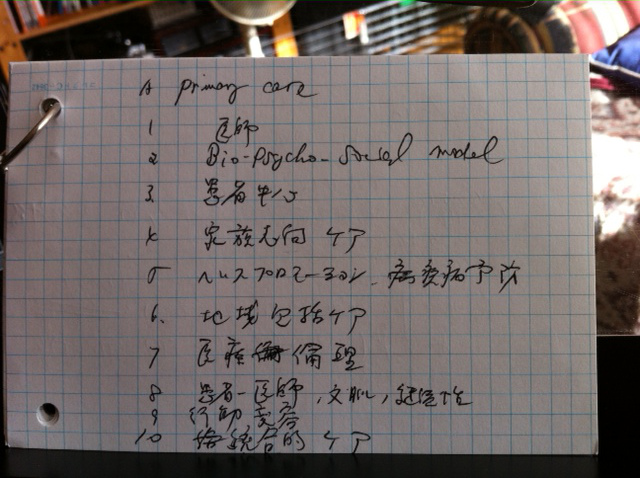 A primary care
1 医師
2 Bio-psycho-social model
3. 患者中心
4 家族志向ケア
5 ヘルスプロモーション、疾病予防
6. 地域包括ケア
7 医療倫理
8 患者-医師,文脈,継続性
9 行動変容
10 統合的ケア